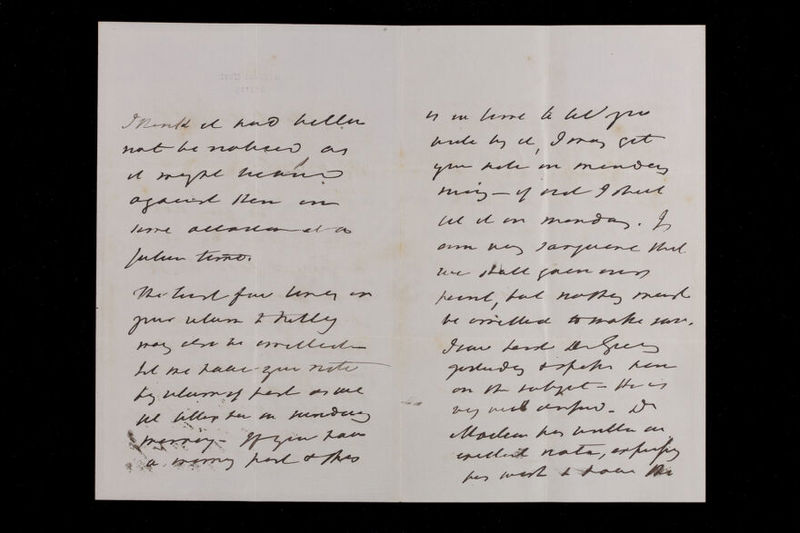 I think it had better
not be noticed as
it might be
against them on
some at a
future time.
The last few lines in
your return to
may also be omitted
let me have your note
by return of post as we
get letters here on Sunday
morning - If you have
a morning post & this
is in time to let you
write by it, I may get
your note on Sunday
- if not I shall
get it on Monday. I
am very sanguine that
we shall gain every
point, but nothing must
be omitted to make sure.
I saw
yesterday & spoke
on the subject - He is
very much - Dr
has written an
excellent note, expressing
his wish to have the